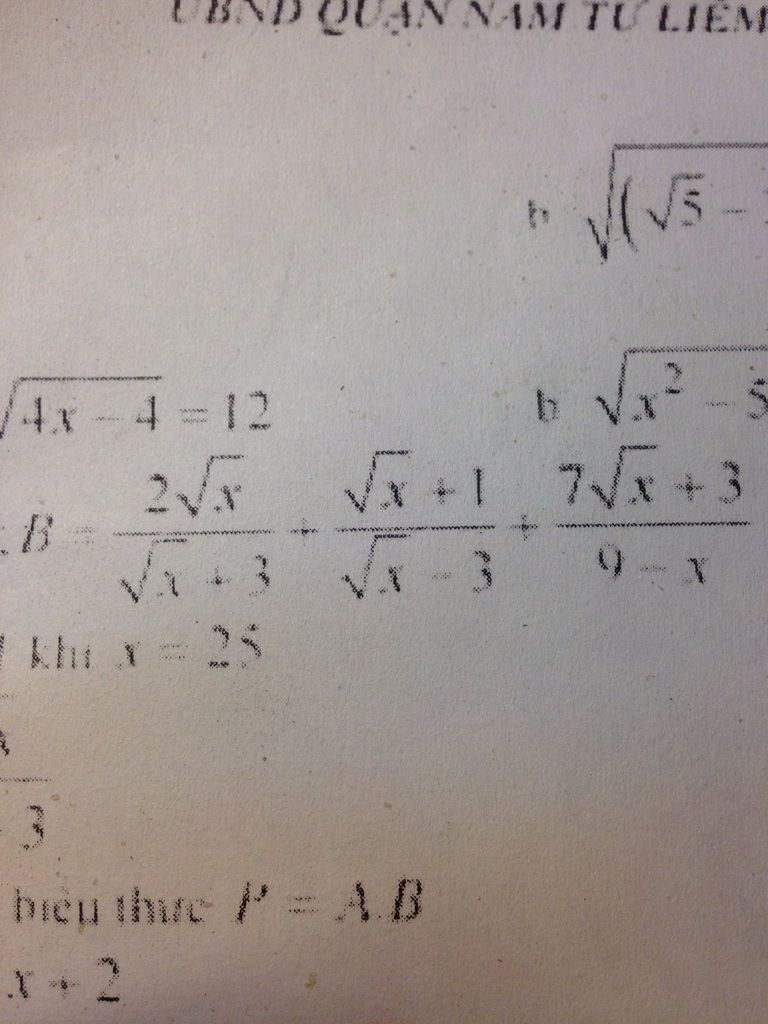 UBND QUẬN NAM TỪ LIÊM
b √(√5 −
√4x − 4 = 12 b √x² − 5
B = 2√x / √x + 3 + √x + 1 / √x − 3 + 7√x + 3 / 9 − x
khi x = 25
3
biểu thức P = A.B
x + 2